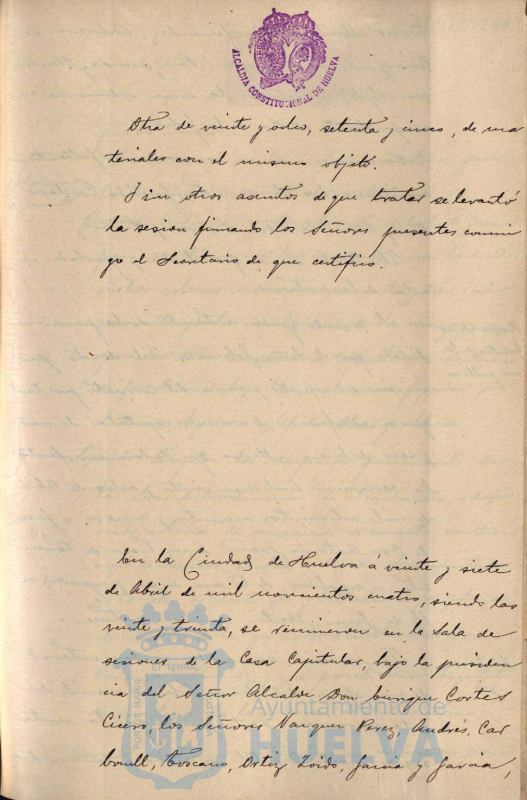 ALCALDIA CONSTITUCIONAL DE HUELVA
Otra de veinte y ocho, setenta y cinco, de ma
teriales con el mismo objeto.
Y sin otros asuntos de que tratar se levantó
la sesion firmando los Señores presentes conmi
go el Secretario de que certifico.
En la Ciudad de Huelva á veinte y siete
de Abril de mil novecientos cuatro, siendo las
veinte y treinta, se reunieron en la Sala de
sesiones de la Casa Capitular, bajo la presiden
cia del Señor Alcalde Don Enrique Cortes
Cícero, los Señores Vazquez Perez, Andrés, Car
bonell, Toscano, Ortiz Toido, Garcia y Garcia,
Ayuntamiento de
HUELVA